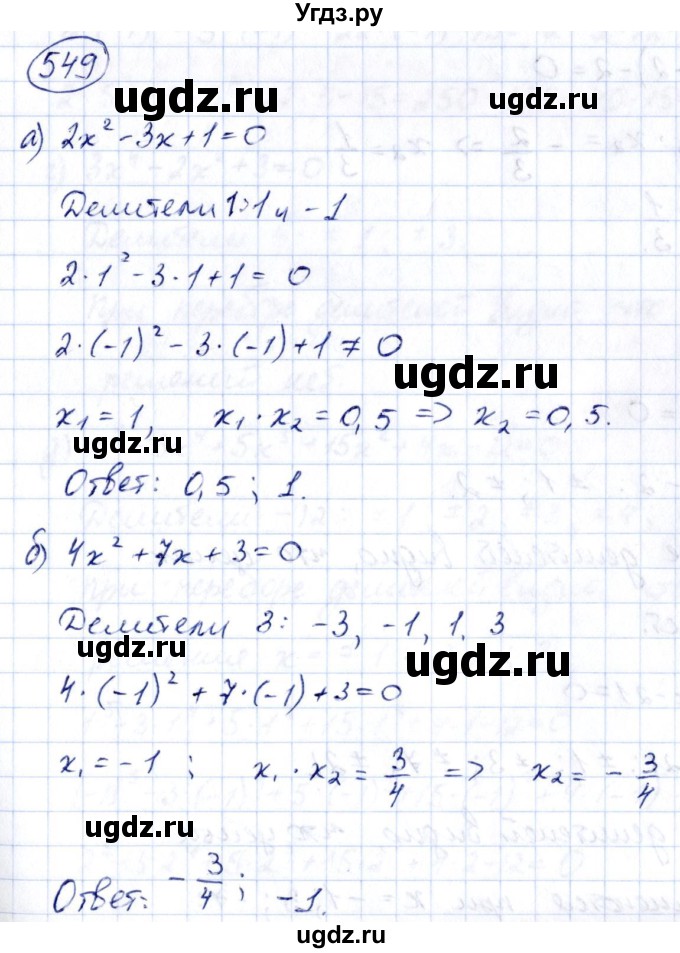 Угдз.ру
549
ugdz.ru
ugdz.ru
а) 2x² - 3x + 1 = 0
Делители 1: 1 и - 1
ugdz.ru
2 · 1² - 3 · 1 + 1 = 0
2 · (-1)² - 3 · (-1) + 1 ≠ 0
ugdz.ru
x₁ = 1, x₁ · x₂ = 0,5 => x₂ = 0,5.
Ответ: 0,5; 1.
ugdz.ru
б) 4x² + 7x + 3 = 0
Делители 3: -3, -1, 1, 3
ugdz.ru
ugdz.ru
4 · (-1)² + 7 · (-1) + 3 = 0
x₁ = -1; x₁ · x₂ = 3/4 => x₂ = - 3/4
ugdz.ru
Ответ: - 3/4; -1.
ugdz.ru
ugdz.ru